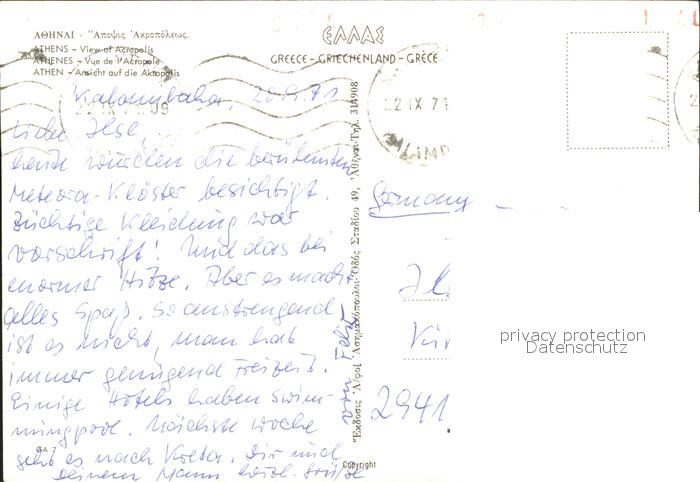 ΑΘΗΝΑΙ - Ἄποψις Ἀκροπόλεως.
ATHENS - View of Acropolis
ATHENES - Vue de l'Acropole
ATHEN - Ansicht auf die Akropolis
ΕΛΛΑΣ
GREECE - GRIECHENLAND - GRÈCE
22 IX 71
Kalambaka, 20.9.71
Liebe Ilse,
heute wurden die berühmten
Meteora-Klöster besichtigt.
Züchtige Kleidung war
Vorschrift! Und das bei
enormer Hitze. Aber es macht
alles Spaß. So anstrengend
ist es nicht, man hat
immer genügend Freizeit.
Einige Hotels haben Swim-
mingpool. Nächste Woche
geht es nach Kreta. Dir und
Deinem Mann herzl. Grüße
von
Germany
2941
GA 7
Ὁδὸς Σταδίου 49, Ἀθῆναι-Τηλ. 314908
Copyright
privacy protection
Datenschutz